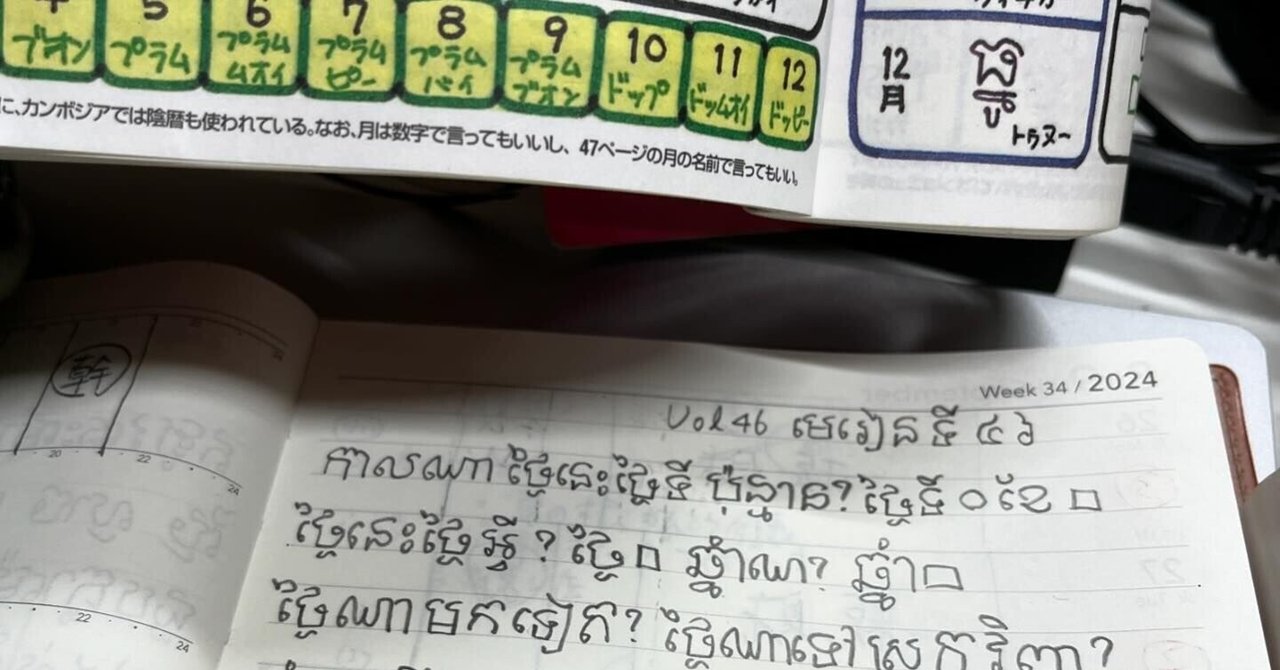 5 6 7 8 9 10 11 12
ブオン プラム プラムムオイ プラムピー プラムバイ プラムブオン ドップ ドップムオイ ドッピー
に、カンボジアでは陰暦も使われている。なお、月は数字で言ってもいいし、47ページの月の名前で言ってもいい。
12月
ធ្នូ
トゥヌー
幹
20 22 24
22 24
Week 34 / 2024
Vol 46 មេរៀនទី ៤៦
កាលណា ថ្ងៃនេះថ្ងៃទី ប៉ុន្មាន? ថ្ងៃទី ០ ខែ □
ថ្ងៃនេះថ្ងៃអ្វី? ថ្ងៃ □ ឆ្នាំណា? ឆ្នាំ □
ថ្ងៃណាមកទៀត? ថ្ងៃណាទៅស្រុកវិញ?